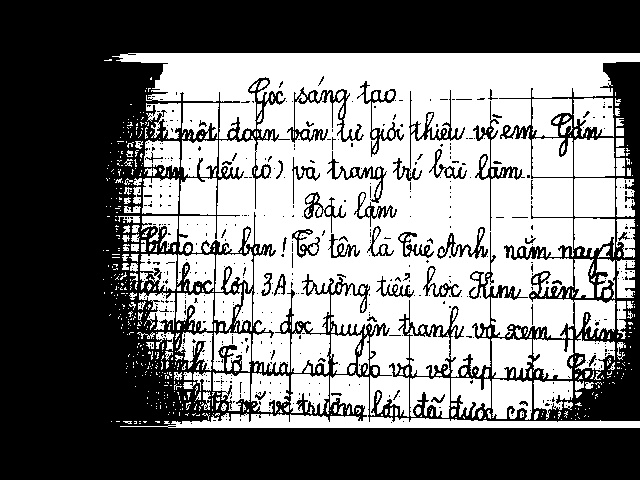 Góc sáng tạo
Viết một đoạn văn tự giới thiệu về em. Gắn
ảnh em (nếu có) và trang trí bài làm.
Bài làm
Chào các bạn! Tớ tên là Tuệ Anh, năm nay tớ
tuổi, học lớp 3A, trường tiểu học Kim Liên. Tớ
nghe nhạc, đọc truyện tranh và xem phim
hình. Tớ múa rất dẻo và vẽ đẹp nữa. Có
tớ vẽ về trường lớp đã được cô